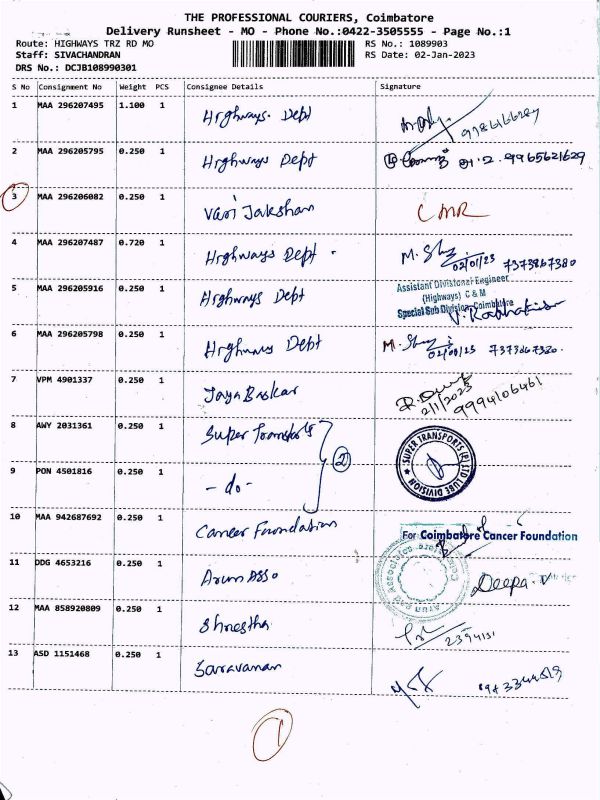 THE PROFESSIONAL COURIERS, Coimbatore
Delivery Runsheet - MO - Phone No.:0422-3505555 - Page No.:1
Route: HIGHWAYS TRZ RD MO RS No.: 1089903
Staff: SIVACHANDRAN RS Date: 02-Jan-2023
DRS No.: DCJB108990301
S No Consignment No Weight PCS Consignee Details Signature
1 MAA 296207495 1.100 1 Highways. Dept
2 MAA 296205795 0.250 1 Highways Dept 9965621629
3 MAA 296206082 0.250 1 Vari Jakshan CMR
4 MAA 296207487 0.720 1 Highways Dept. 02/01/23 7373867380
Assistant Divisional Engineer
(Highways) C & M
Special Sub Division, Coimbatore
5 MAA 296205916 0.250 1 Highways Dept
6 MAA 296205798 0.250 1 Highways Dept 7373867380.
7 VPM 4901337 0.250 1 Jaya Baskar 2/1/2023 9994106461
8 AWY 2031361 0.250 1 Super Transports
SUPER TRANSPORTS (P) LTD LUBE DIVISION
9 PON 4501816 0.250 1 - do - 2
10 MAA 942687692 0.250 1 Cancer Foundation
For Coimbatore Cancer Foundation
11 DDG 4653216 0.250 1 Arun Asso Deepa. V
12 MAA 858920809 0.250 1 Shrestha 2394131
13 ASD 1151468 0.250 1 Saravanan
1